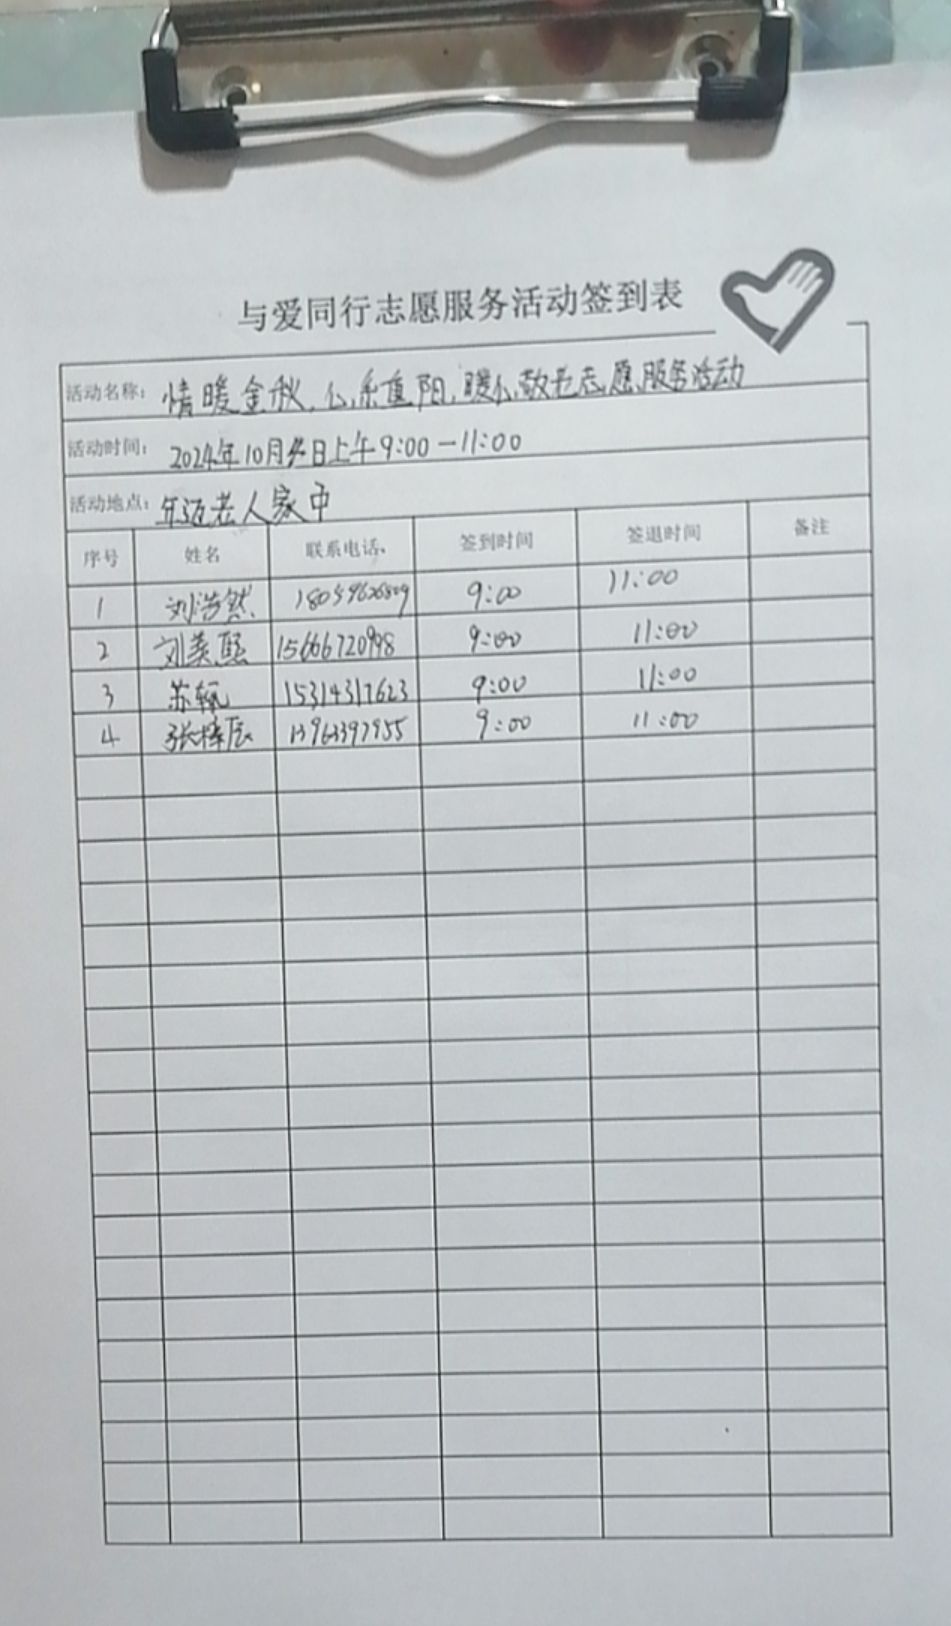 与爱同行志愿服务活动签到表
活动名称: 情暖金秋,心系重阳,暖心敬老志愿服务活动
活动时间: 2024年10月 日上午9:00-11:00
活动地点: 年迈老人家中
序号 姓名 联系电话、 签到时间 签退时间 备注
1 刘浩然 9:00 11:00
2 刘美熙 15666720998 9:00 11:00
3 苏 15314317623 9:00 11:00
4 张 辰 13963397955 9:00 11:00